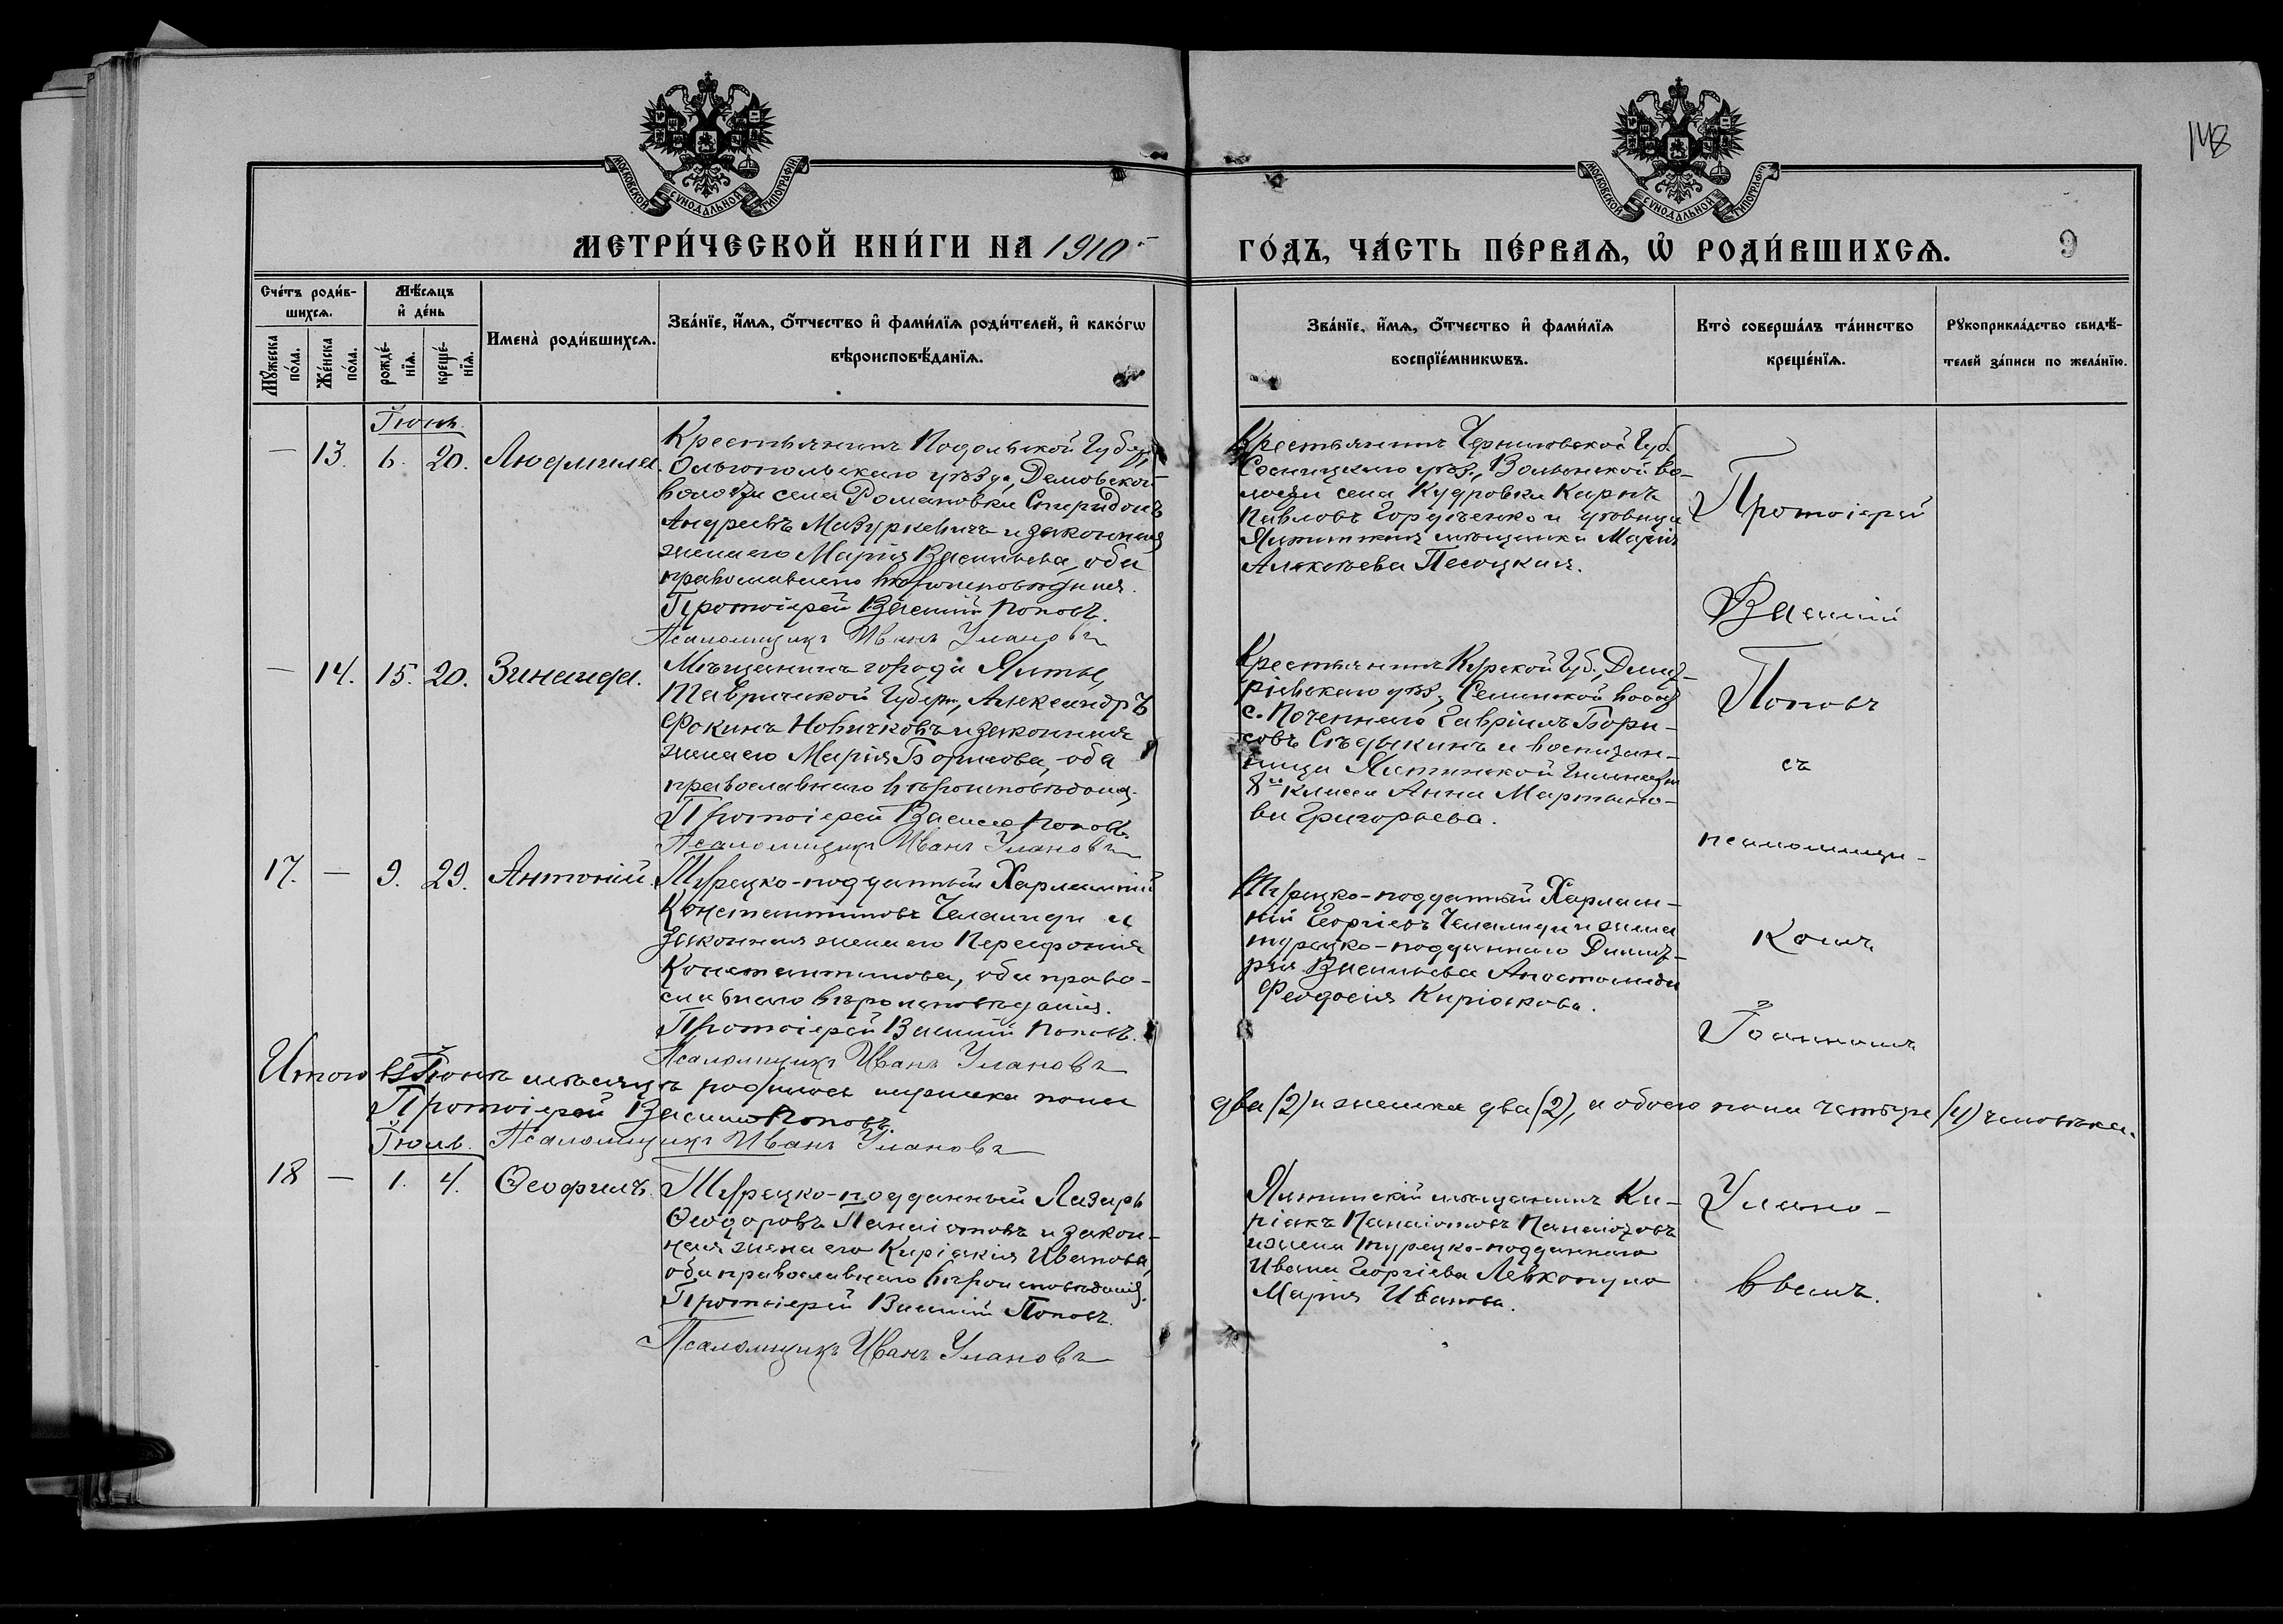 148
МОСКОВСКОЙ СѴНОДАЛЬНОЙ ТИПОГРАФІИ
МОСКОВСКОЙ СѴНОДАЛЬНОЙ ТИПОГРАФІИ
МЕТРИ́ЧЕСКОЙ КНИ́ГИ НА 1910
ГО́ДЪ, ЧА́СТЬ ПЕ́РВАѦ, Ѽ РОДИ́ВШИХСѦ.
9
Сче́тъ роди́в-
шихсѧ.
Мꙋ́жеска по́ла.
Же́нска по́ла.
Мѣ́сѧцъ
и҆ де́нь
рожде́-
нїѧ.
креще́-
нїѧ.
Имена̀ роди́вшихсѧ.
Зва́нїе, и҆́мѧ, ѻ҆́тчество и҆ фами́лїѧ роди́телей, и҆ како́гѡ
вѣроисповѣ́данїѧ.
Зва́нїе, и҆́мѧ, ѻ҆́тчество и҆ фами́лїѧ
воспрїе́мникѡвъ.
Кто̀ соверша́лъ та́инство
креще́нїѧ.
Рꙋкоприкла́дство свидѣ́-
телей за́писи по жела́нїю.
Іюнь.
— 13. 6. 20. Людмила.
Крестьянинъ Подольской Губер.,
Ольгопольскаго уѣзда, Демовской
волости села Романовки Спиридонъ
Андреевъ Мазуркевичъ и законная
жена его Марія Васильева, оба
православнаго вѣроисповѣданія.
Протоіерей Василій Поповъ.
Псаломщикъ Иванъ Улановъ
Крестьянинъ Черниговской Губ.
Сосницкаго уѣз., Волынской во-
лости села Кудровки Карпъ
Павловъ Горδиенко и дѣвица
Ялтинская мѣщанка Марія
Алексѣева Песоцкая.
— 14. 15. 20. Зинаида.
Мѣщанинъ города Ялты,
Таврической Губерн., Александръ
Фокинъ Новичковъ и законная
жена его Марія Борисова, оба
православнаго вѣроисповѣданія.
Протоіерей Василій Поповъ.
Псаломщикъ Иванъ Улановъ
Крестьянинъ Курской Губ., Димит-
ріевскаго уѣз., Селинской волос.
с. Поченнаго Гавріилъ Бори-
совъ Сѣдыкинъ и воспитан-
ница Ялтинской Гимназіи
8го класса Анна Мартыно-
ва Григорьева.
17. — 9. 29. Антоній.
Турецко-подданный Харлампій
Константиновъ Челаиди и
законная жена его Персефонія
Константинова, оба право-
славнаго вѣроисповѣданія.
Протоіерей Василій Поповъ.
Псаломщикъ Иванъ Улановъ
Турецко-подданный Харлам-
пій Георгіевъ Челаиди и жена
турецко-подданнаго Димит-
рія Васильева Апостолиди
Феодосія Киріакова.
Протоіерей
Василій
Поповъ
съ
псаломщи-
комъ
Іоанномъ
Улано-
вымъ.
Итого въ Іюнѣ мѣсяцѣ родилось мужеска пола
два (2) и женска два (2), а обоего пола четыре (4) человѣка.
Протоіерей Василій Поповъ.
Псаломщикъ Иванъ Улановъ
Іюль.
18 — 1. 4. Ѳеофилъ.
Турецко-подданный Лазарь
Ѳеодоровъ Панаіотовъ и закон-
ная жена его Киріакія Иванова,
оба православнаго вѣроисповѣданія.
Протоіерей Василій Поповъ.
Псаломщикъ Иванъ Улановъ
Ялтинскій мѣщанинъ Ки-
ріакъ Панаіотовъ Панаіотовъ
и жена турецко-подданнаго
Ивана Георгіева Левкопуло
Марія Иванова.